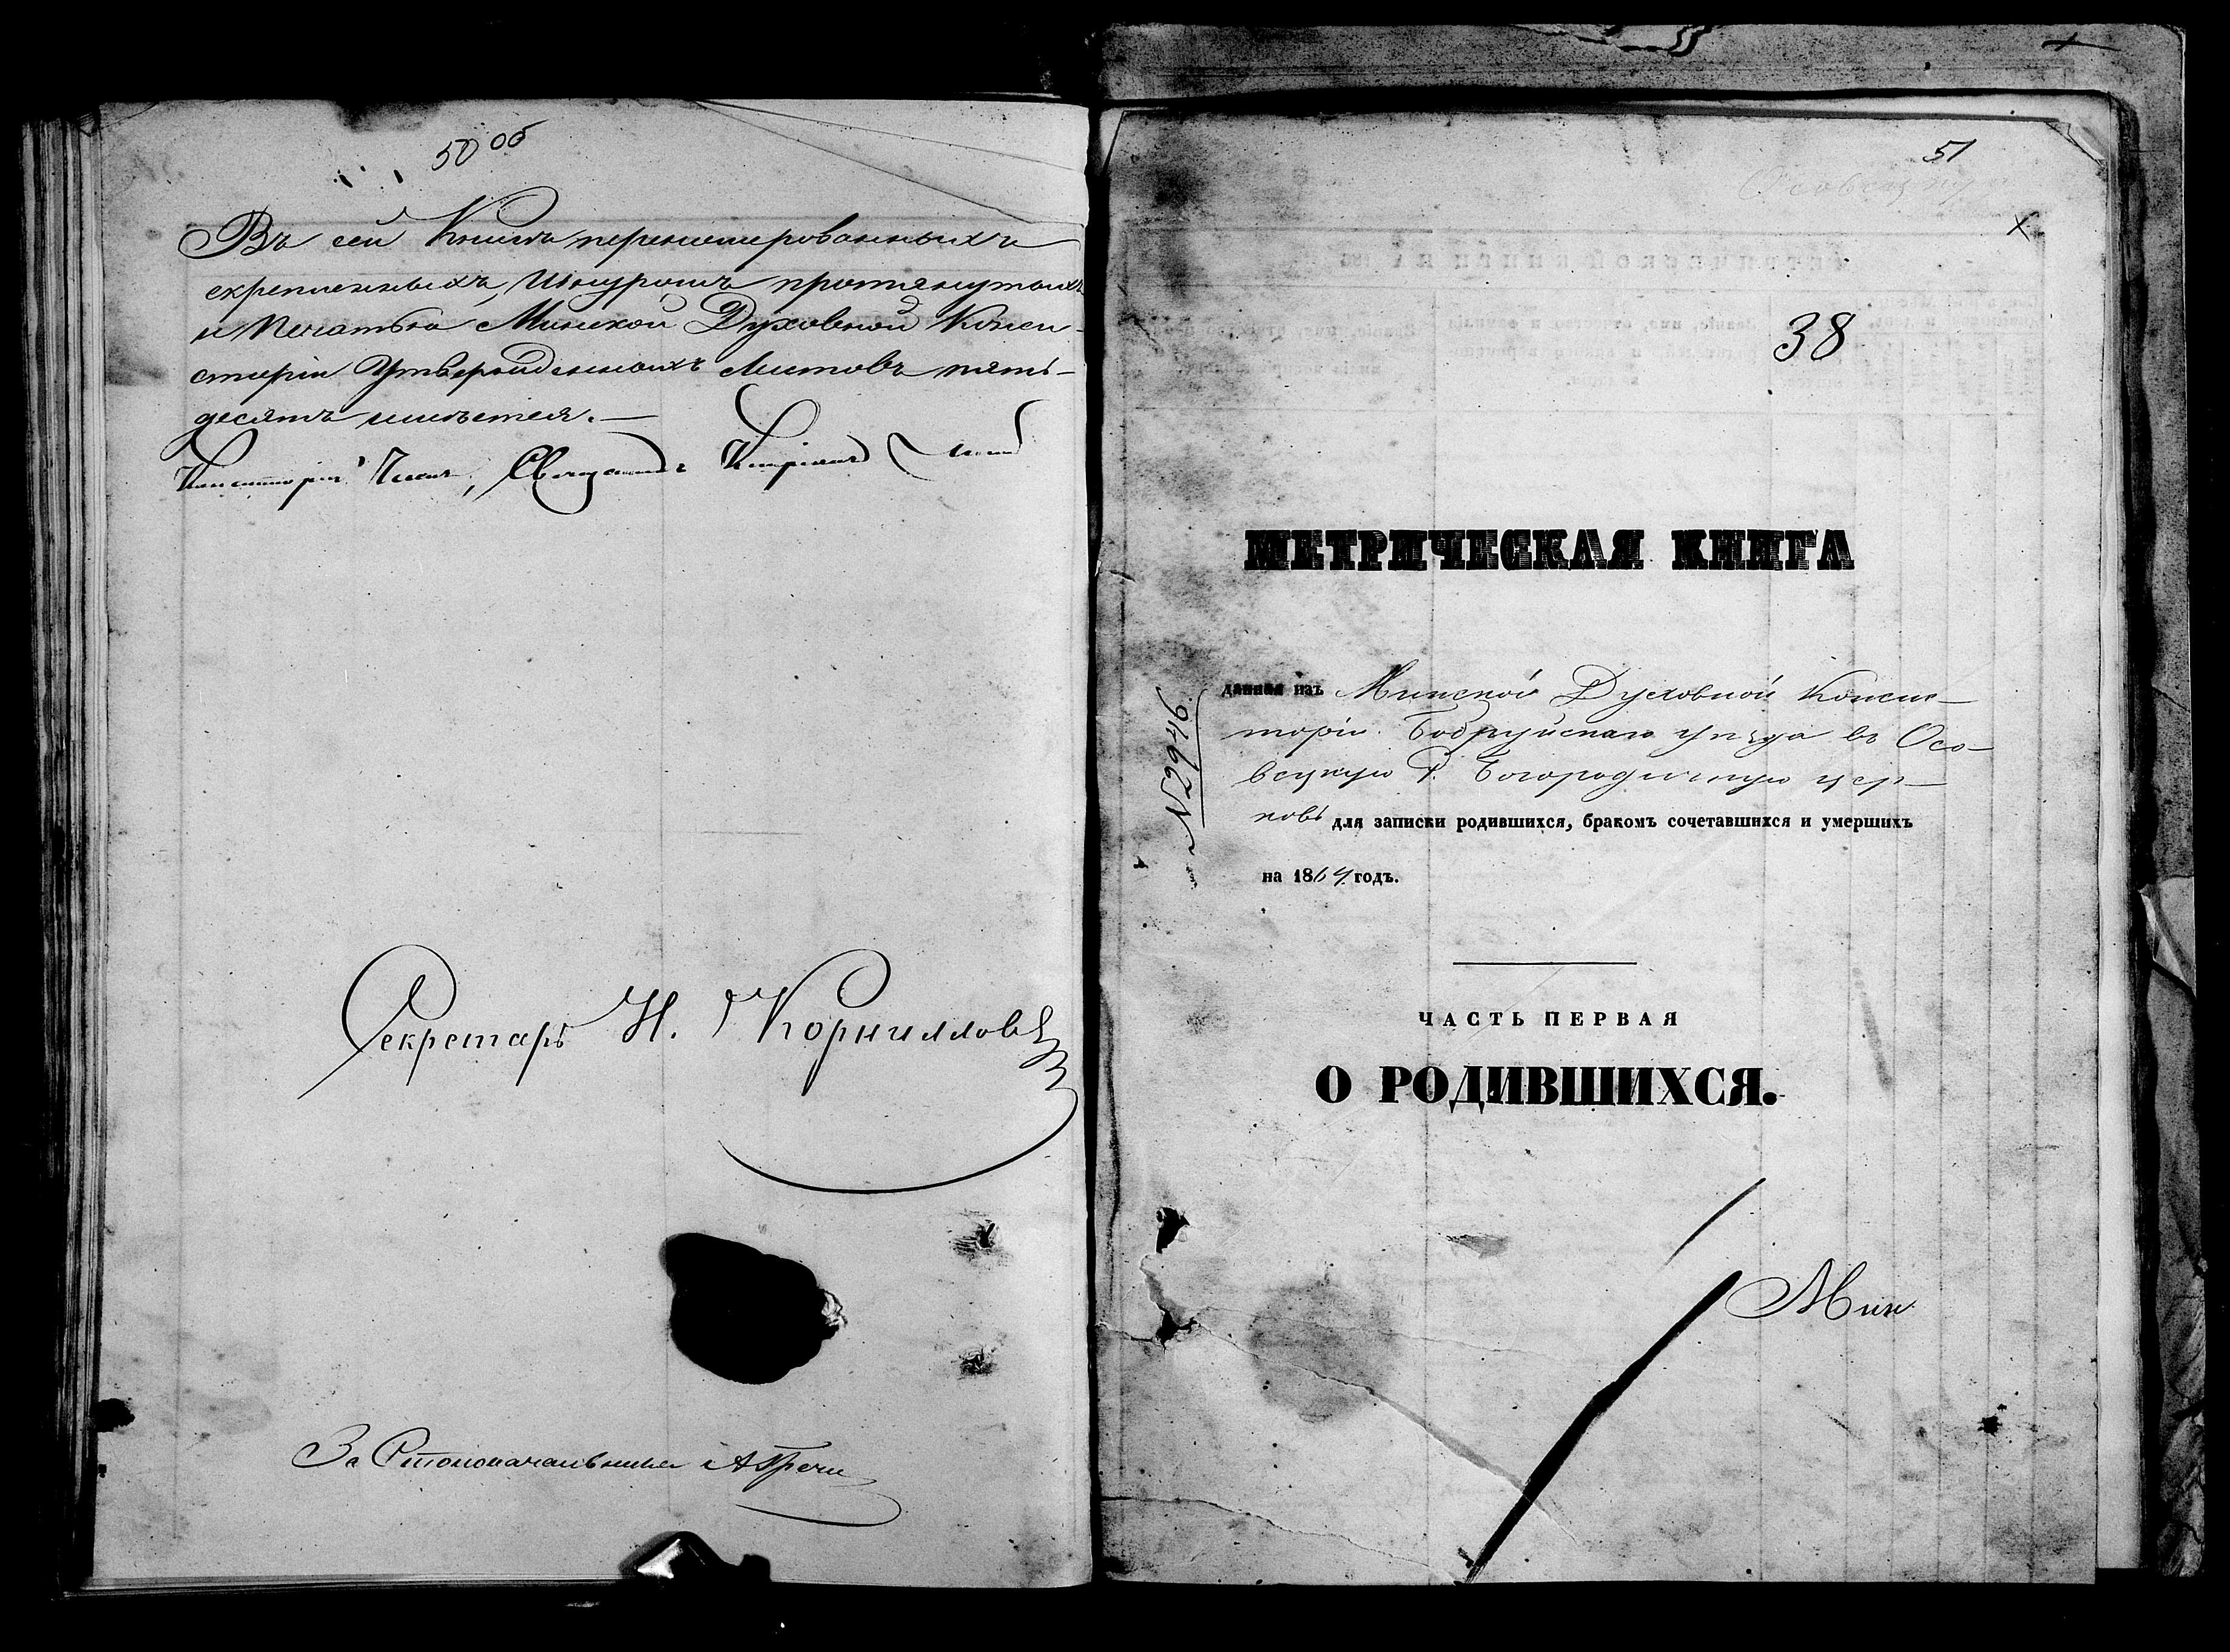 50 об
Въ сей Книгѣ перенумерованныхъ
скрепленныхъ, Шнуромъ протянутыхъ
и Печатью Минской Духовной Конси-
сторіи Утвержденныхъ Листовъ пять-
десятъ имѣется. —
Консисторіи Членъ, Священникъ
Секретарь Н. Корниллов
За Столоначальника
51
38
МЕТРИЧЕСКАЯ КНИГА
данная изъ Минской Духовной Консис-
торіи Бобруйскаго уѣзда въ Осо-
вецкую Р. Богородичную цер-
ковь для записки родившихся, бракомъ сочетавшихся и умершихъ
на 1864 годъ.
№ 2946
ЧАСТЬ ПЕРВАЯ
О РОДИВШИХСЯ.
Мин